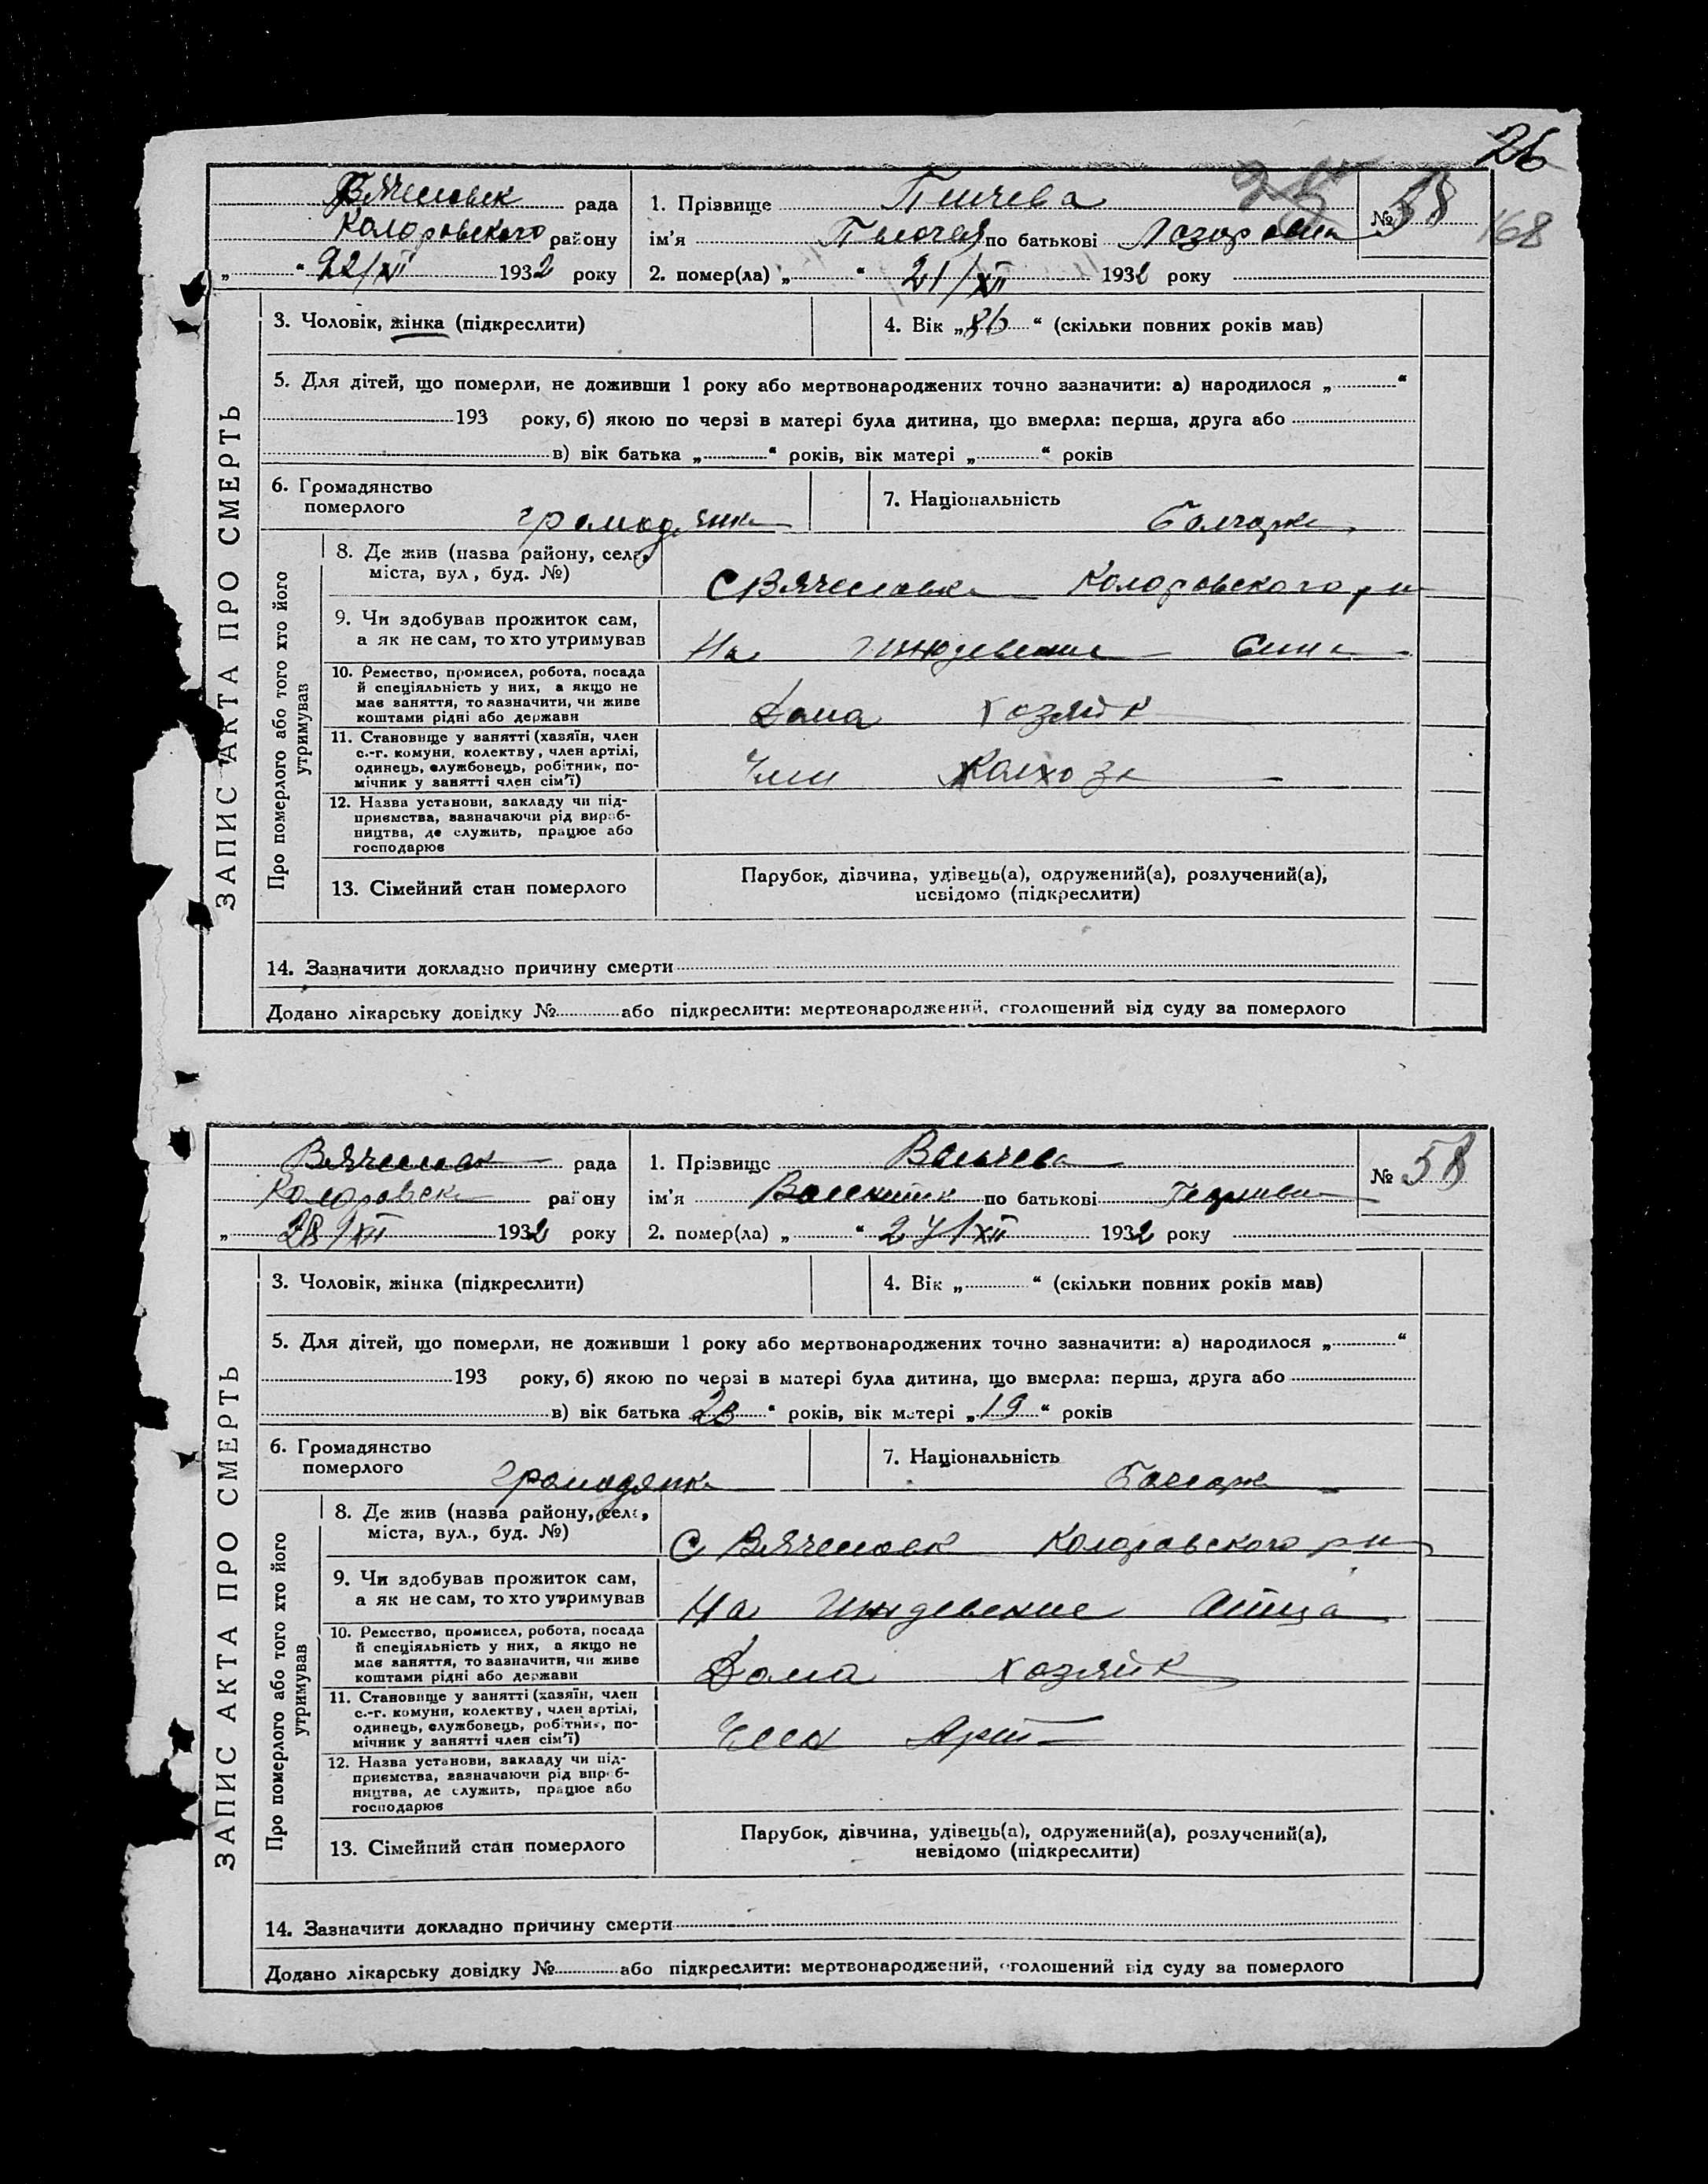 26
25
Вячеславк рада
Коларовского району
„ “ 22/XII 1932 року
1. Прізвище
ім'я по батькові Лазаровна
2. помер(ла) „ “ 21/XII 1932 року
№ 58
168
ЗАПИС АКТА ПРО СМЕРТЬ
3. Чоловік, жінка (підкреслити)
4. Вік „86“ (скільки повних років мав)
5. Для дітей, що померли, не доживши 1 року або мертвонароджених точно зазначити: а) народилося „ “
193 року, б) якою по черзі в матері була дитина, що вмерла: перша, друга або
в) вік батька „ “ років, вік матері „ “ років
6. Громадянство
померлого громадянка
7. Національність Болгарка
Про померлого або того хто його
утримував
8. Де жив (назва району, села,
міста, вул, буд. №)
С Вячеславка Коларовского р н
9. Чи здобував прожиток сам,
а як не сам, то хто утримував
На Иждевение Сина
10. Ремество, промисел, робота, посада
й спеціяльність у них, а якщо не
має заняття, то зазначити, чи живе
коштами рідні або держави
Дома хозяйк
11. Становище у занятті (хазяїн, член
с.-г. комуни, колектву, член артілі,
одинець, службовець, робітник, по-
мічник у занятті член сім'ї)
Член Колхоза
12. Назва установи, закладу чи під-
приємства, зазначаючи рід вироб-
ництва, де служить, працює або
господарює
13. Сімейний стан померлого
Парубок, дівчина, удівець(а), одружений(а), розлучений(а),
невідомо (підкреслити)
14. Зазначити докладно причину смерти
Додано лікарську довідку № або підкреслити: мертвонароджений, оголошений від суду за померлого
Вячеславк рада
Коларовск району
„ 28/XII 1932 року
1. Прізвище Вълчева
ім'я по батькові
2. помер(ла) „ “ 27/XII 1932 року
№ 58
ЗАПИС АКТА ПРО СМЕРТЬ
3. Чоловік, жінка (підкреслити)
4. Вік „ “ (скільки повних років мав)
5. Для дітей, що померли, не доживши 1 року або мертвонароджених точно зазначити: а) народилося „ “
193 року, б) якою по черзі в матері була дитина, що вмерла: перша, друга або
в) вік батька 23“ років, вік матері „19“ років
6. Громадянство
померлого громадянка
7. Національність Болгарк
Про померлого або того хто його
утримував
8. Де жив (назва району, села,
міста, вул., буд. №)
С Вячеславк Коларовского р н
9. Чи здобував прожиток сам,
а як не сам, то хто утримував
На Иждевение Отца
10. Ремество, промисел, робота, посада
й спеціяльність у них, а якщо не
має заняття, то зазначити, чи живе
коштами рідні або держави
Дома хозяйк
11. Становище у занятті (хазяїн, член
с.-г. комуни, колектву, член артілі,
одинець, службовець, робітник, по-
мічник у занятті член сім'ї)
Член Арт
12. Назва установи, закладу чи під-
приємства, зазначаючи рід вироб-
ництва, де служить, працює або
господарює
13. Сімейний стан померлого
Парубок, дівчина, удівець(а), одружений(а), розлучений(а),
невідомо (підкреслити)
14. Зазначити докладно причину смерти
Додано лікарську довідку № або підкреслити: мертвонароджений, оголошений від суду за померлого